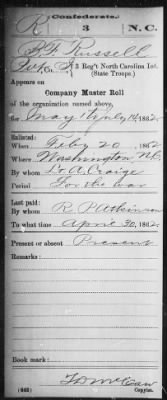 Confederate.
R 3 N.C.
R F Russell
Co. F, 3 Reg't North Carolina Inf.
(State Troops.)
Appears on
Company Muster Roll
of the organization named above,
for May 1 to July 14, 1862.
Enlisted:
When Feby 20, 1862
Where Washington N.C.
By whom Lt A. Craige
Period For the war
Last paid:
By whom R P Atkinson
To what time April 30, 1862.
Present or absent Present
Remarks:
Book mark:
(642) Copyist.